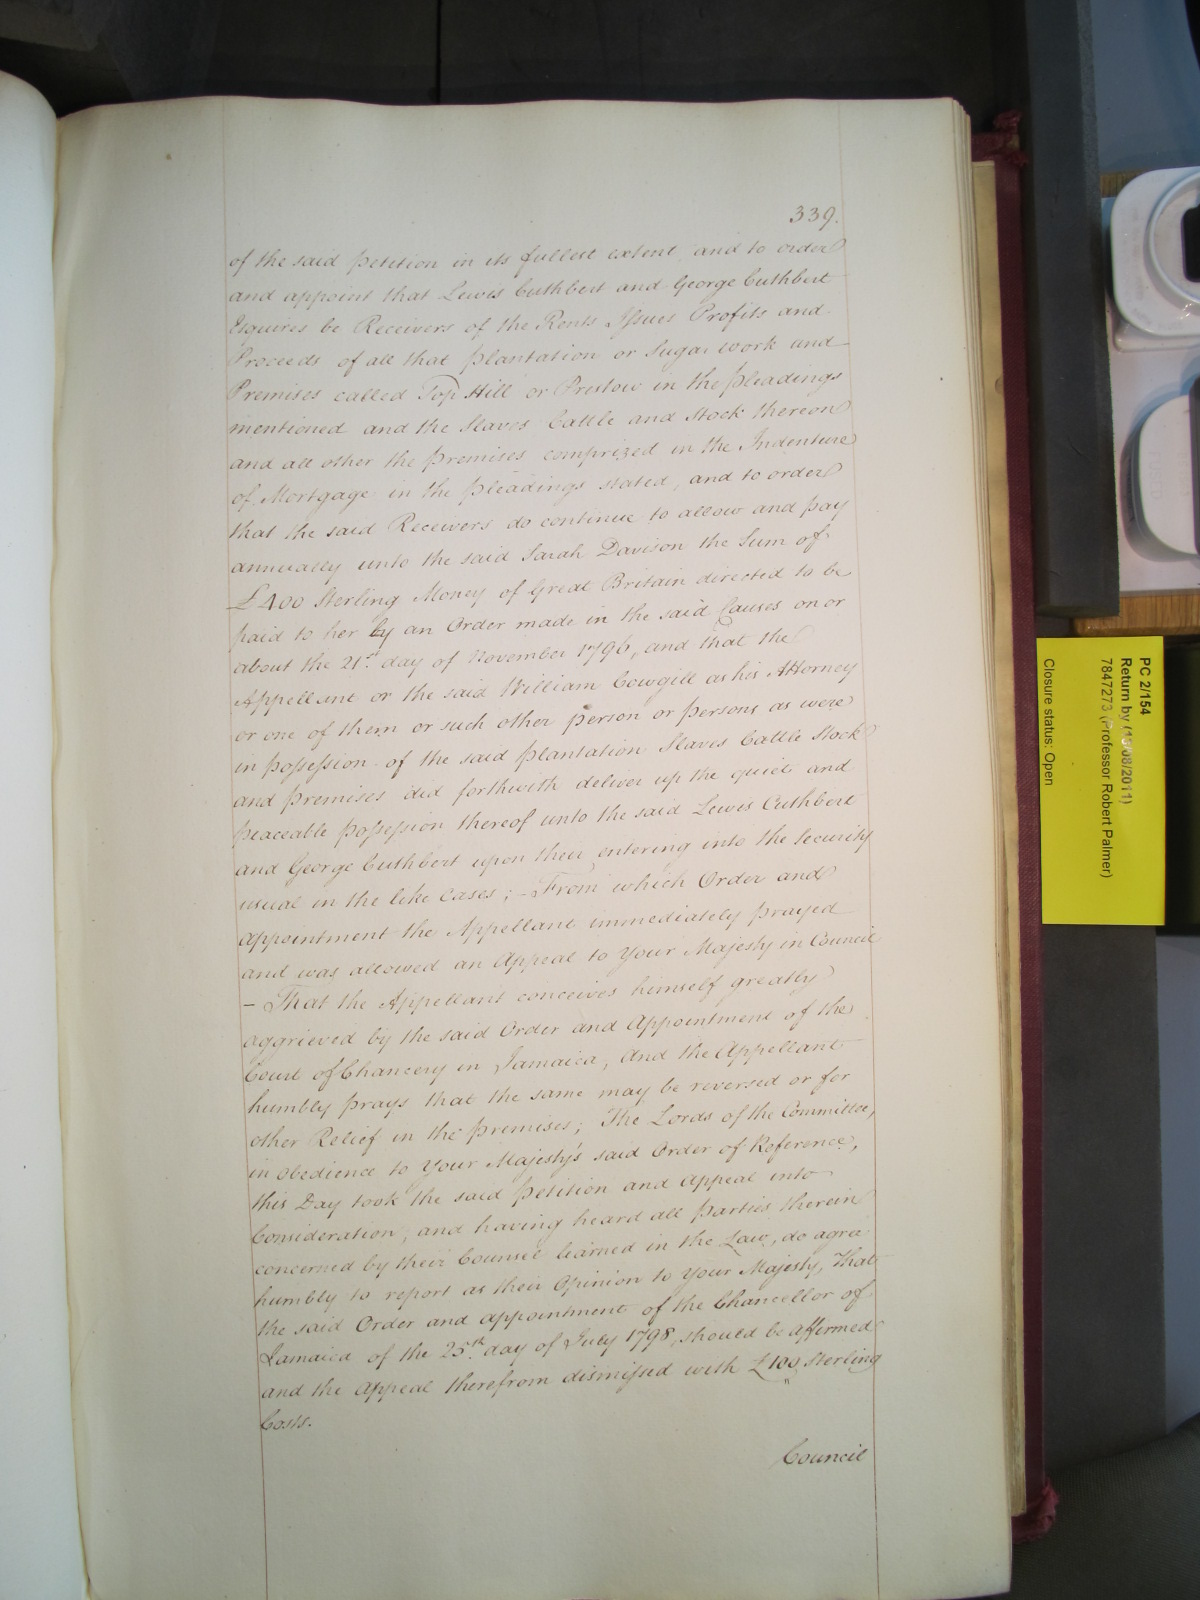 339.
of the said Petition in its fullest extent, and to order
and appoint that Lewis Cuthbert and George Cuthbert
Esquires be Receivers of the Rents Issues Profits and
Proceeds of all that Plantation or Sugar work and
Premises called Top Hill or Preslow in the Pleadings
mentioned and the Slaves Cattle and Stock thereon
and all other the Premises comprized in the Indenture
of Mortgage in the Pleadings stated, and to order
that the said Receivers do continue to allow and pay
annually unto the said Sarah Davison the Sum of
£400 Sterling Money of Great Britain directed to be
paid to her by an Order made in the said Causes on or
about the 21st day of November 1796, and that the
Appellant or the said William Cowgill as his Attorney
or one of them or such other person or persons as were
in possession of the said Plantation Slaves Cattle Stock
and Premises did forthwith deliver up the quiet and
peaceable possession thereof unto the said Lewis Cuthbert
and George Cuthbert upon their entering into the Security
usual in the like Cases; - From which Order and
appointment the Appellant immediately prayed
and was allowed an Appeal to Your Majesty in Council
- That the Appellant conceives himself greatly
aggrieved by the said Order and Appointment of the
Court of Chancery in Jamaica, And the Appellant
humbly prays that the same may be reversed or for
other Relief in the Premises; The Lords of the Committee,
in Obedience to Your Majesty's said Order of Reference,
this Day took the said Petition and Appeal into
Consideration, and having heard all Parties therein
concerned by their Counsel learned in the Law, do agree
humbly to report as their Opinion to Your Majesty, That
the said Order and appointment of the Chancellor of
Jamaica of the 25th day of July 1798, should be affirmed
and the Appeal therefrom dismissed with £100 Sterling
Costs.
Council
PC 2/154
Return by (15/08/2011)
7847273 (Professor Robert Palmer)
Closure status: Open